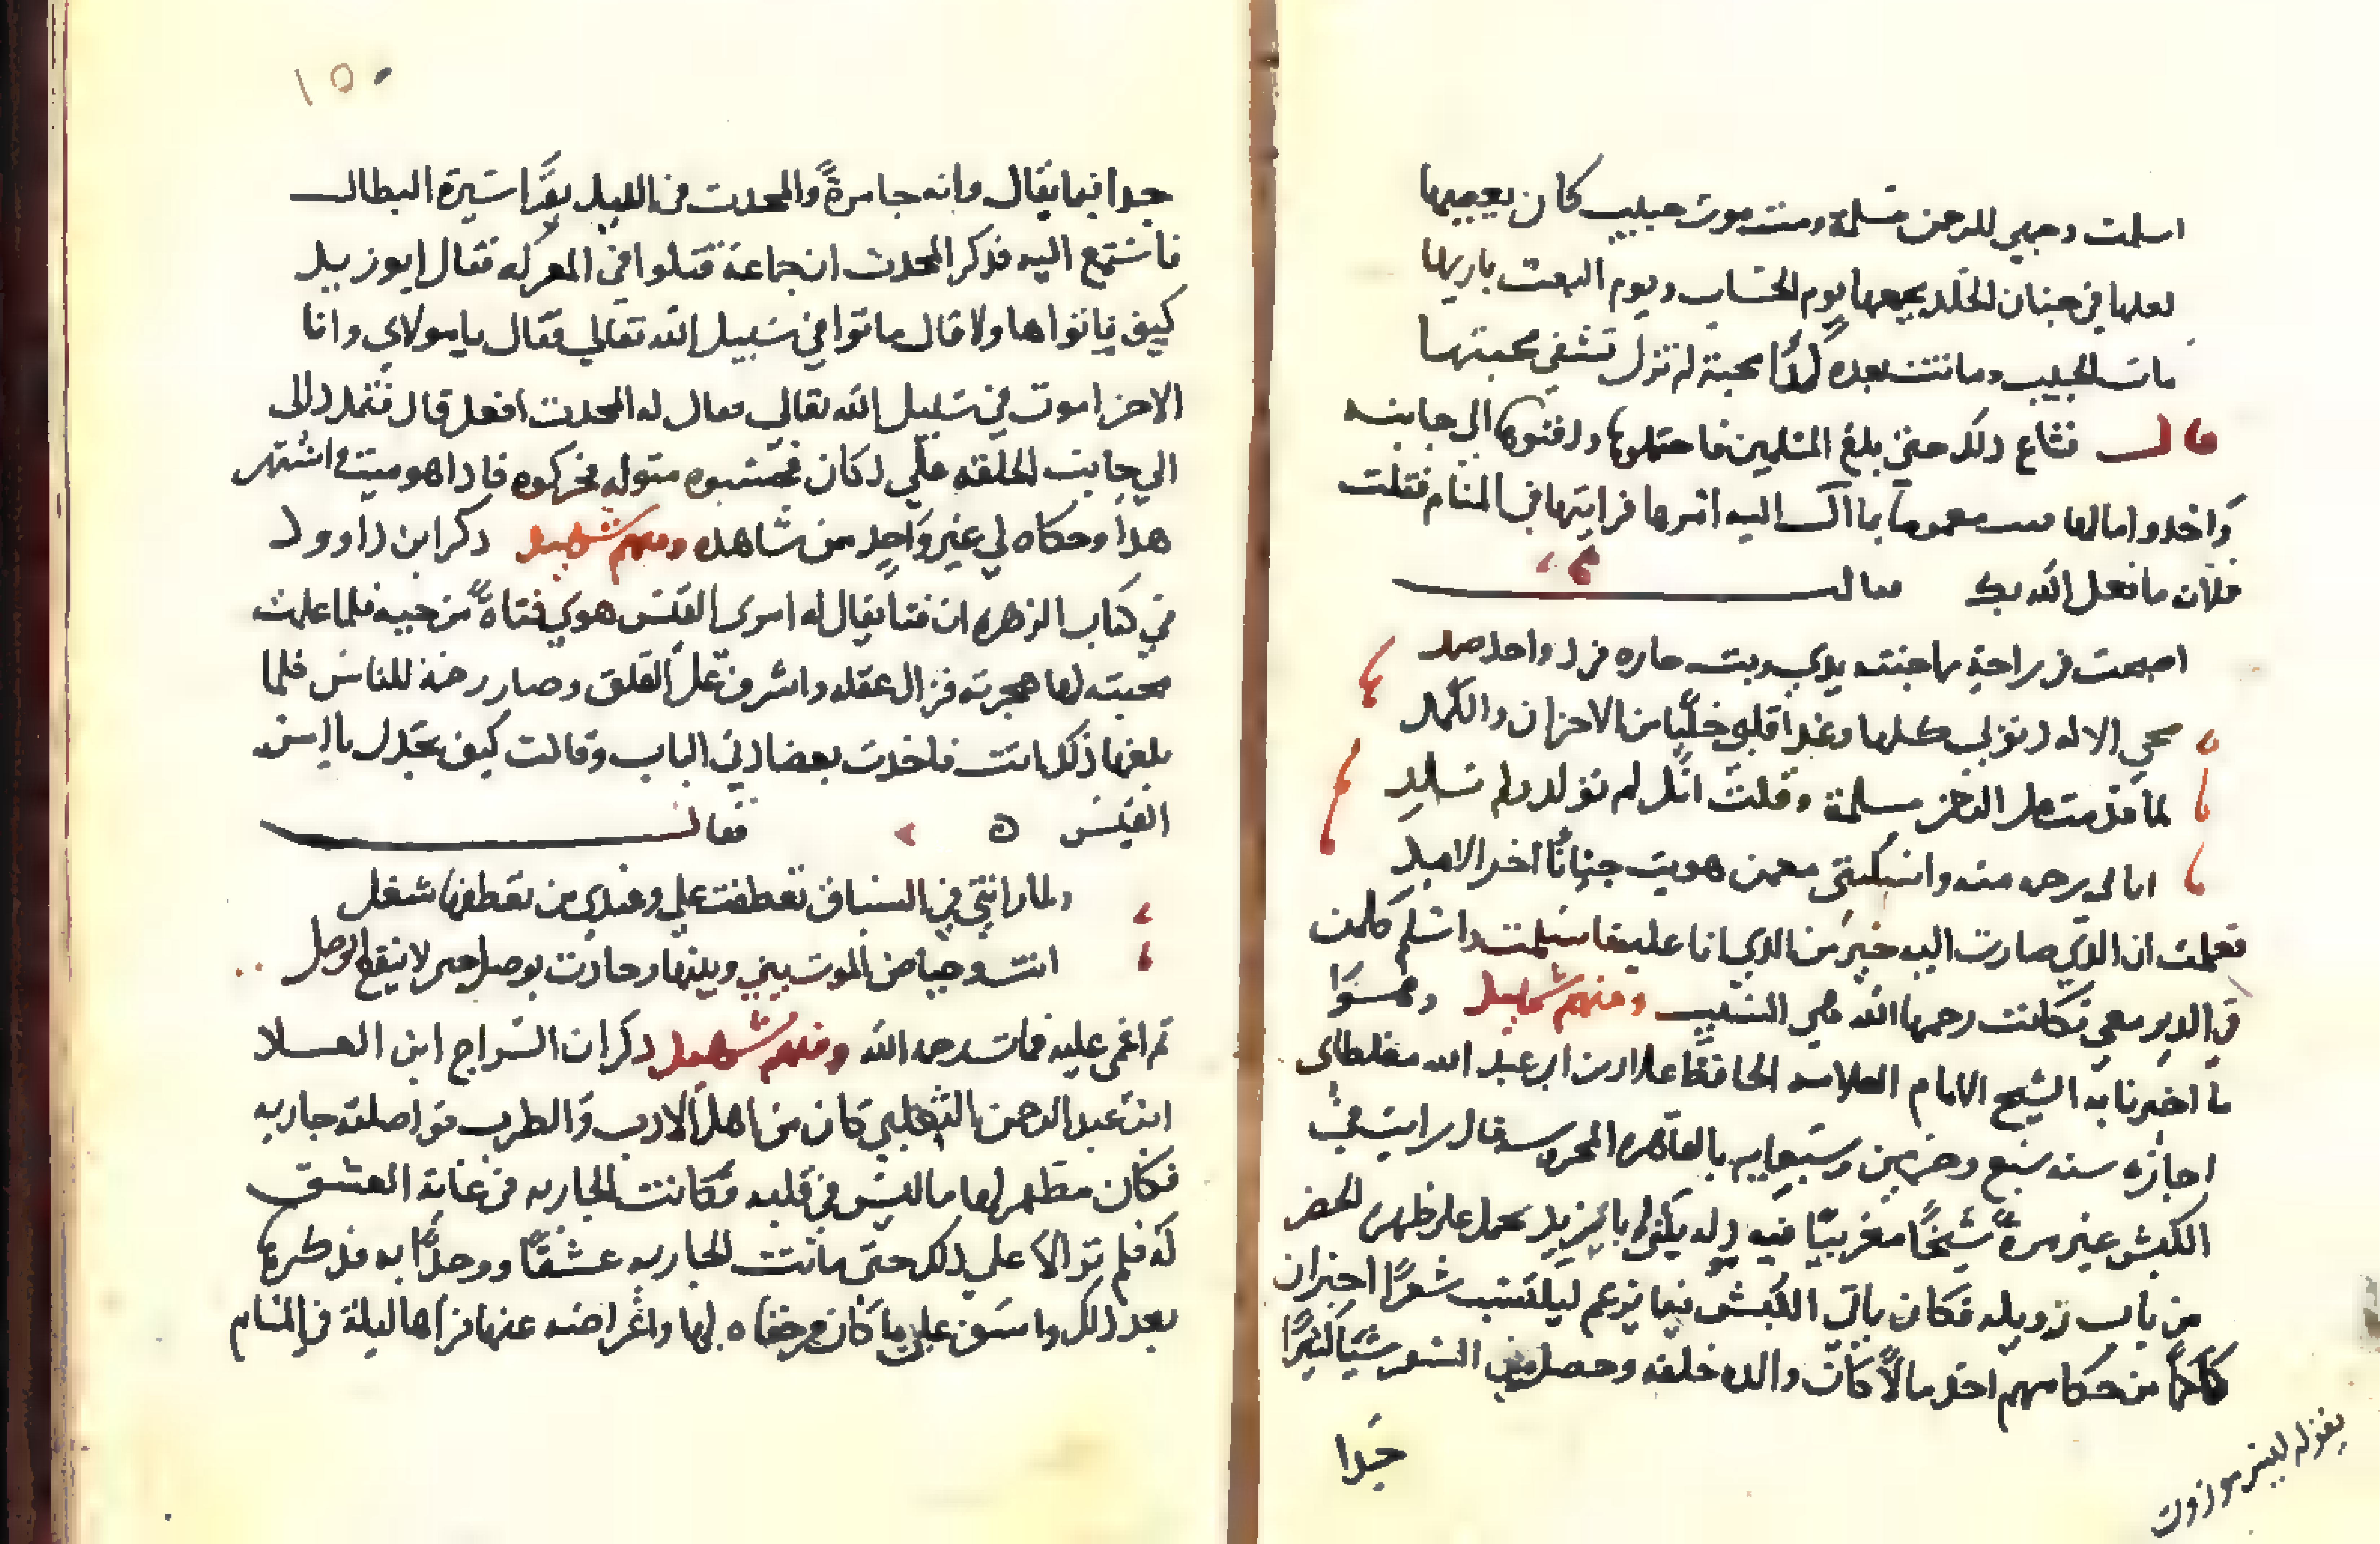 اسلمت وجهي للرحمن مسلمة ومنت موت حبيب كان يعجبها
لعلها في جنان الخلد يجمعها يوم الحساب ويوم البعث باريها
مات الحبيب وماتت بعده محبة لم تزل تشفي محبيها
قال فشاع ذلك حتى بلغ المسلمين فاحتملوها ودفنوها الي جانبه
واخدوا امالها معموما بما اليه امرها فرايتها في المنام فقلت
فلان ما فعل الله بك فقال
اصبحت في راحة مما جنته يدي وبت جاره فرد واحد صمد
محي الاله ذنوبي كلها وغدا قلبي خليا من الاحزان والكمد
لما قدمت على الرحمن مسلمة وقلت انك لم تولد ولم تلد
رحمه منه واسكنني مع من هويت جنانا اخر الابد
فعلمت ان الذي صارت اليه خير من الذي انا عليه فاسلمت واسلم كلمن
في الدير معي فكانت رحمها الله هي السبب ومنهم شهيد وهو
ما اخبرنا به الشيخ الامام العلامه الحافظ علاء الدين ابو عبد الله مغلطاى
اجازه سنه سبع وخمسين وسبعمايه بالقاهره المحروسه قال رايت في
الكبش غير مرة شيخا مغربيا فيه وله يكنى بابى زيد يحمل على ظهره الخضر
من باب زويله فكان ياتي الكبش فيما يزعم ليكتسب شعرا اخبران
من حكامهم اخذ مالا كان والده خلفه وحصل من الشعر شيا كثيرا
جدا
يقوله ليس موزون
١٥٠
جدا فيما يقال وانه جا مرة والمحدث في الليل يقرا سيرة البطال
فاستمع اليه فذكر المحدث ان جماعة قتلوا في المعركه فقال ابو زيد
كيف ماتوا هاولا قال ماتوا في سبيل الله تعالي فقال يامولاي وانا
الاخر اموت في سبيل الله تعالى فقال له المحدث افعل قال فتمدد الى
الي جانب الحلقه علي دكان فحسبوه متوله فحركوه فاذا هو ميت اشتهر
هدا وحكاه لي غير واحد ممن شاهده ومنهم شهيد ذكر ابن داوود
في كتاب الزهره ان فتا يقال له امرى القيس هوي فتاة من حيه فلما علمت
محبته لها هجرته فزال عقله واشرف على القلق وصار رحمة للناس فلما
بلغها ذلك اتت فاخدت بعضادتي الباب وقالت كيف تجدك يا امرى
القيس فقال
ولما راتني في السياق تعطفت علي وعندي من تعطفها شغل
اتت وحياض الموت بيني وبينها وجادت بوصل حين لا ينفع الوصل
تم اغمى عليه فمات رحمه الله ومنهم شهيد ذكر ان السراج ابن العلا
ابن عبد الرحمن التغلبي كان من اهل الادب والطرب فواصلته جاريه
فكان مظهر لها ما ليس في قلبه فكانت الجاريه في غاية العشق
له فلم توالا علي ذلك حتى ماتت الجاريه عشقا ووجدا به فذكرها
بعد ذلك واسف علي ما كان من جفاه لها واعراضه عنها فراها ليلة في المنام